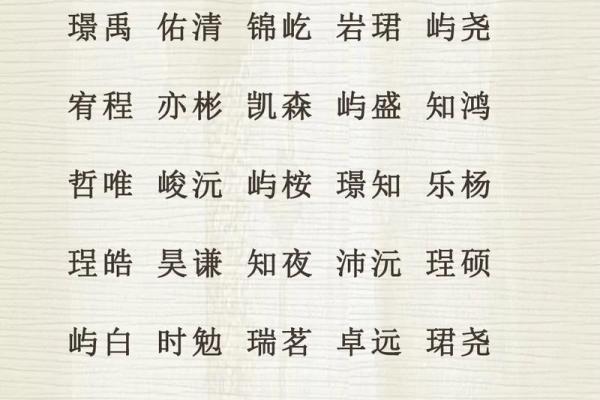 璟禹 佑清 锦屹 岩珺 屿尧
宥程 亦彬 凯森 屿盛 知鸿
哲唯 峻沅 屿桉 璟知 乐杨
珵皓 昊谦 知夜 沛沅 珵硕
屿白 时勉 瑞茗 卓远 珺尧